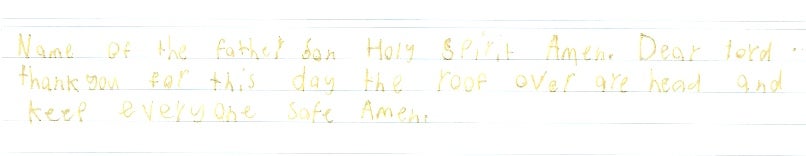 Name of the father son Holy Spirit Amen. Dear lord
thank you for this day the roof over are head and
keep everyone safe Amen.